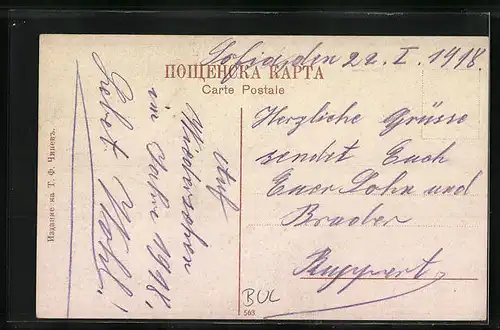 Sofia, den 22. I. 1918.
ПОЩЕНСКА КАРТА
Carte Postale
Herzliche Grüsse
sendet Euch
Euer Sohn und
Bruder
Ruppert.
Auf
Wiedersehen
im Jahre 1918,
Lebet Wohl!
Издание на Т. Ф. Чипевъ.
BUL
563